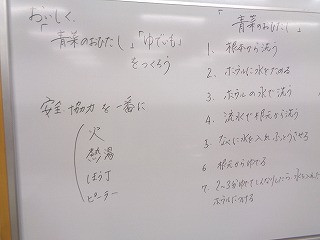 おいしく、
「青菜のおひたし」「ゆでいも」
をつくろう
安全 協力を一番に
火
熱湯
ほう丁
ピーラー
「青菜のおひたし」
1. 根本から洗う
2. ボウルに水をためる
3. ボウルの水で洗う
4. 流水で根元から洗う
5. なべに水を入れふっとうさせる
6 根元からゆでる
7 2~3分ゆでてしんなりしたら水を入れた
ボウルにつける